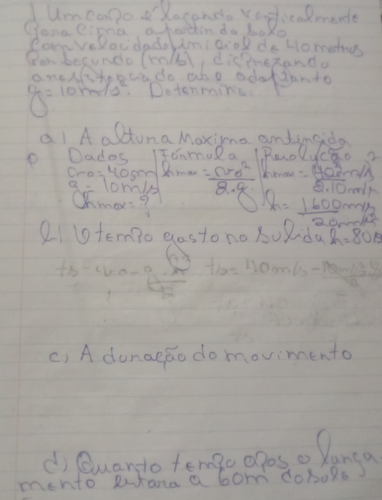 1 Um corpo é lançando verticalmente
para cima a partir do solo
com velocidade inicial de 40 metros
por segundo (m/s), disprezando
a resistencia do ar e adotanto
g=10m/s². Determine.
a) A altura Maxima antingida
Dados | Fórmula | Resolução
vo=40m hmax=vo² hmax=40²
g=10m/s 2.g 2.10m/s
hmax=? h=1600m/s
20m/s²
b) O tempo gasto na subida h=80
ts= ts=40m/s-
c) A duração do movimento
d) Quanto tempo após o lança
mento estara a 60m do solo